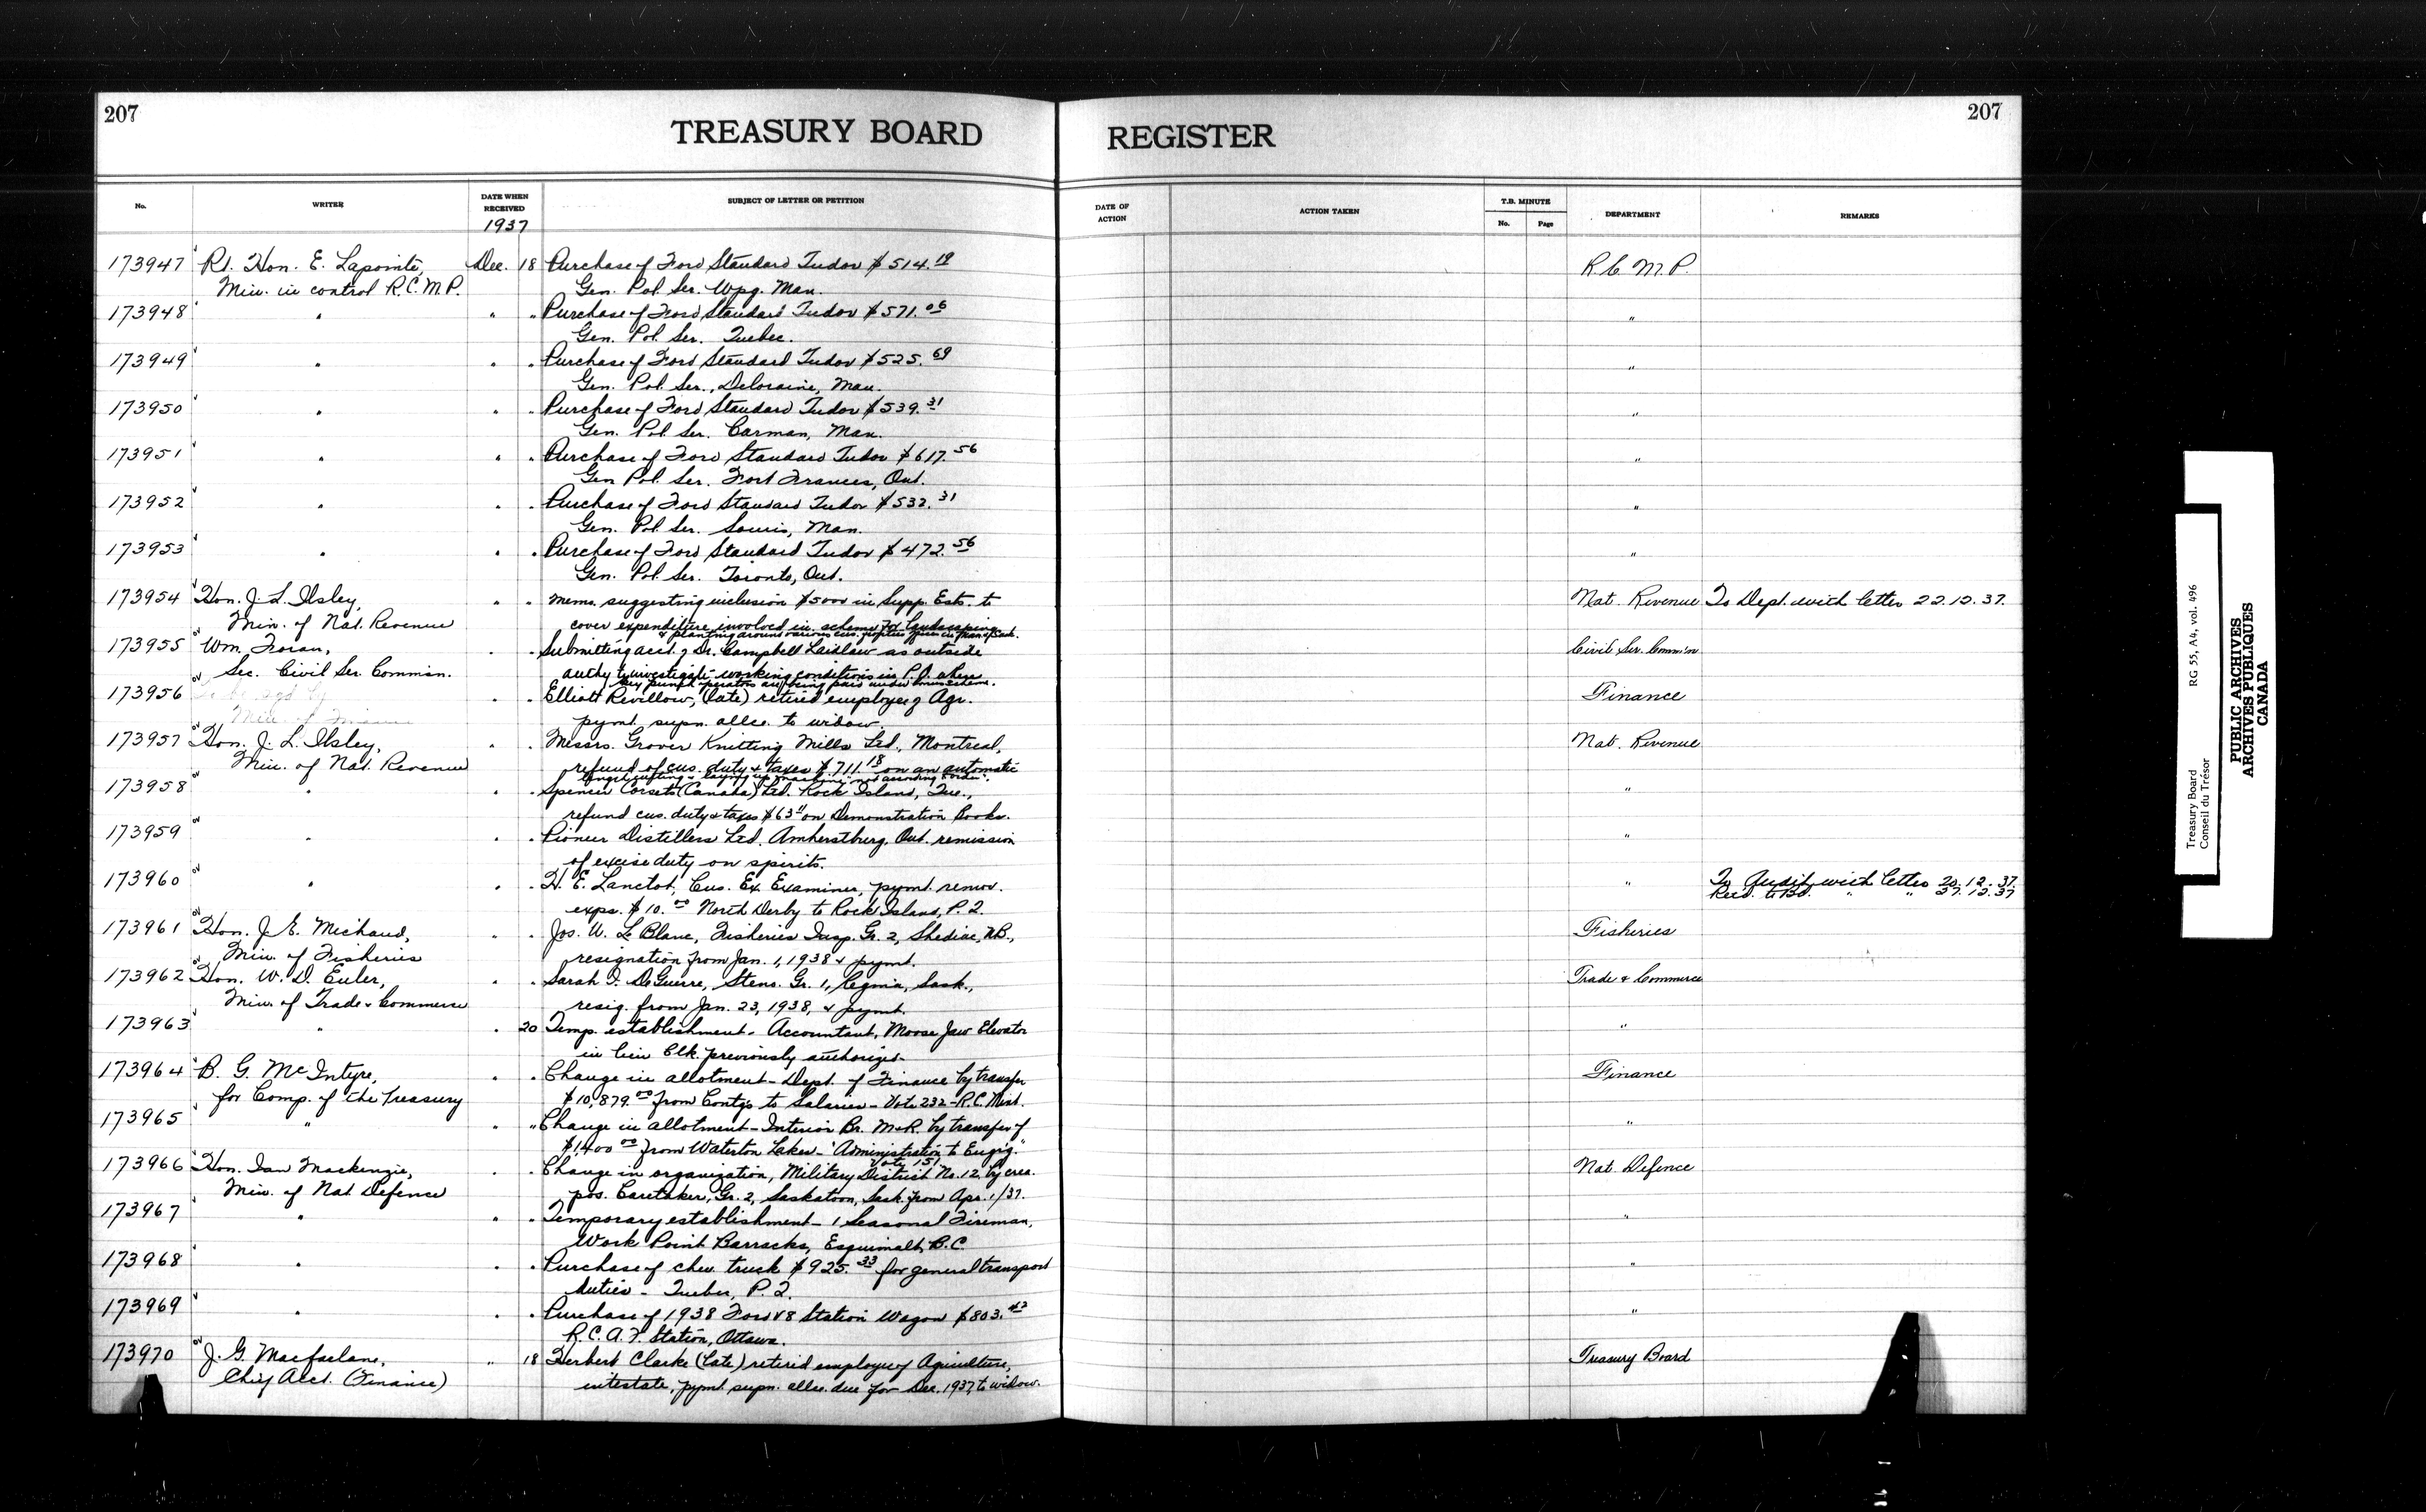 207
207
TREASURY BOARD
REGISTER
No.
WRITER
DATE WHEN RECEIVED
1937
SUBJECT OF LETTER OR PETITION
DATE OF ACTION
ACTION TAKEN
T.B. MINUTE
No.
Page
DEPARTMENT
REMARKS
173947 Rt. Hon. E. Lapointe, Dec. 18 Purchase of Ford Standard Tudor $514.19 R.C.M.P.
Min. in control R.C.M.P. Gen. Pol. Ser. Wpg. Man.
173948 " " " Purchase of Ford Standard Tudor $571.06 "
Gen. Pol. Ser. Quebec.
173949 " " " Purchase of Ford Standard Tudor $525.69 "
Gen. Pol. Ser., Deloraine, Man.
173950 " " " Purchase of Ford Standard Tudor $539.31 "
Gen. Pol. Ser. Carman, Man.
173951 " " " Purchase of Ford Standard Tudor $617.56 "
Gen Pol. Ser. Fort Frances, Ont.
173952 " " " Purchase of Ford Standard Tudor $532.31 "
Gen. Pol. Ser. Souris, Man.
173953 " " " Purchase of Ford Standard Tudor $472.56 "
Gen. Pol. Ser. Toronto, Ont.
173954 Hon. J. L. Ilsley, " " Memo. suggesting inclusion $5000 in Supp. Ests. to Nat. Revenue To Dept. with letter 22.12.37.
Min. of Nat. Revenue cover expenditure involved in scheme for landscaping
& planting around various cus.
173955 Wm. Foran, " " Submitting acct. of Dr. Campbell Laidlaw as outside Civil Ser. Comm'n
Sec. Civil Ser. Commn. authy to investigate working conditions in P.O. where
key punch operators are being paid under bonus scheme.
173956 " " Elliott Revillow, (late) retired employee of Agr. Finance
pymt. supn. allce. to widow.
173957 Hon. J. L. Ilsley, " " Messrs. Grover Knitting Mills Ltd., Montreal, Nat. Revenue
Min. of Nat. Revenue refund of cus. duty & taxes $711.18 on an automatic
173958 " " " Spencer Corsets (Canada) Ltd. Rock Island, Que., "
refund cus. duty & taxes $63.11 on Demonstration Books.
173959 " " " Pioneer Distillers Ltd. Amherstburg, Ont. remission "
of excise duty on spirits.
173960 " " " H. E. Lanctot, Cus. Ex. Examiner, pymt. remov. " To Audit with letter 20.12.37.
exps. $10.00 North Derby to Rock Island, P.Q. Recd. " " 27.12.37
173961 Hon. J. E. Michaud, " " Jos. W. Le Blanc, Fisheries Insp. Gr. 2, Shediac, N.B., Fisheries
Min. of Fisheries resignation from Jan. 1, 1938 & pymt.
173962 Hon. W. D. Euler, " " Sarah I. DeGuerre, Steno. Gr. 1, Regina, Sask., Trade & Commerce
Min. of Trade & Commerce resig. from Jan. 23, 1938, & pymt.
173963 " " 20 Temp. establishment. Accountant, Moose Jaw Elevator "
in lieu Clk. previously authorized.
173964 B. G. McIntyre, " " Change in allotment - Dept. of Finance by transfer Finance
for Comp. of the Treasury $10,879.00 from Contg's to Salaries - Vote 232 - R.C. Mint.
173965 " " " Change in allotment - Interior Br. M&R. by transfer of "
$1,400.00 from Waterton Lakes - "Administration to Eng'g."
Vote 151
173966 Hon. Ian Mackenzie, " " Change in organization, Military District No. 12, by crea. Nat. Defence
Min. of Nat. Defence pos. Caretaker, Gr. 2, Saskatoon, Sask. from Apr. 1/37.
173967 " " " Temporary establishment - 1 Seasonal Fireman, "
Work Point Barracks, Esquimalt, B.C.
173968 " " " Purchase of chev. truck $925.33 for general transport "
duties - Quebec, P.Q.
173969 " " " Purchase of 1938 Ford V8 Station Wagon $803.43 "
R.C.A.F. Station, Ottawa.
173970 J. G. Macfarlane, " 18 Herbert Clarke (late) retired employee of Agriculture, Treasury Board
Chief Acct. (Finance) intestate, pymt. supn. allce. due for Dec. 1937, to widow.
Treasury Board RG 55, A4, vol. 496
Conseil du Trésor
PUBLIC ARCHIVES
ARCHIVES PUBLIQUES
CANADA